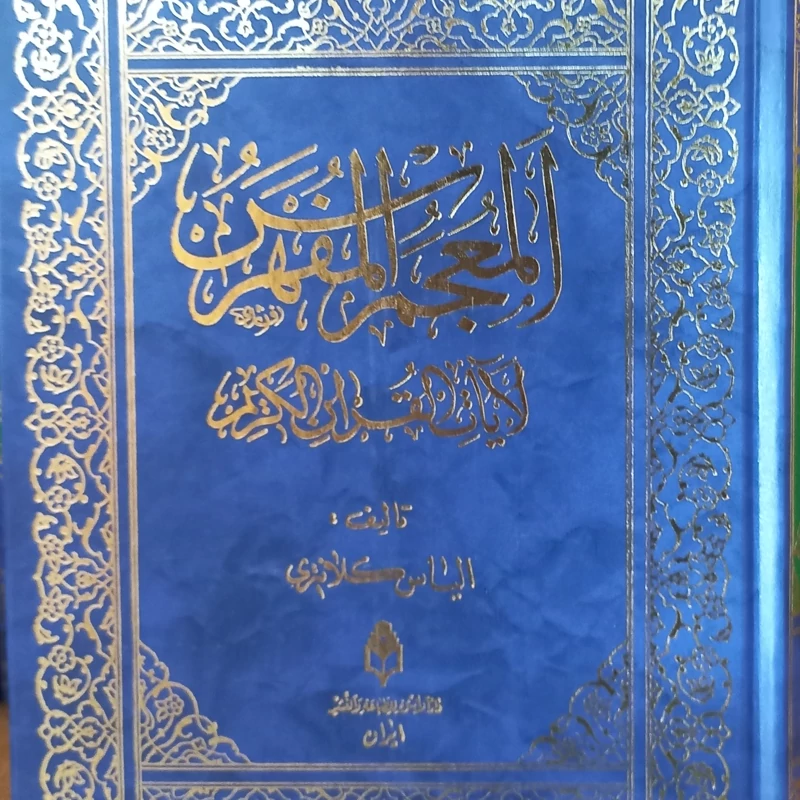 المعجم المفهرس
لآيات القرآن الكريم
تأليف:
الياس كلانتري
ايران